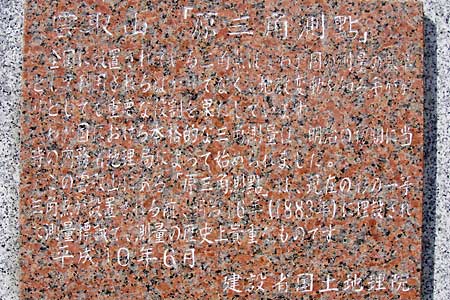 雲取山 「原三角測點」
三角 設置 原三角 わが国の測量の
として利用される なく、地殻変動を知る手が
として 重要な役割を果 しています。
わが国における本格的な三角測量は、明治の初 に当
時の内務省地理局によって始められました。
この雲取山にある「原三角測點」は、現在の 一等
三角 設置 明治16年(1883年)に埋設され
測量標識で、測量の歴史上貴重なものです。
平成10年6月
建設省国土地理院